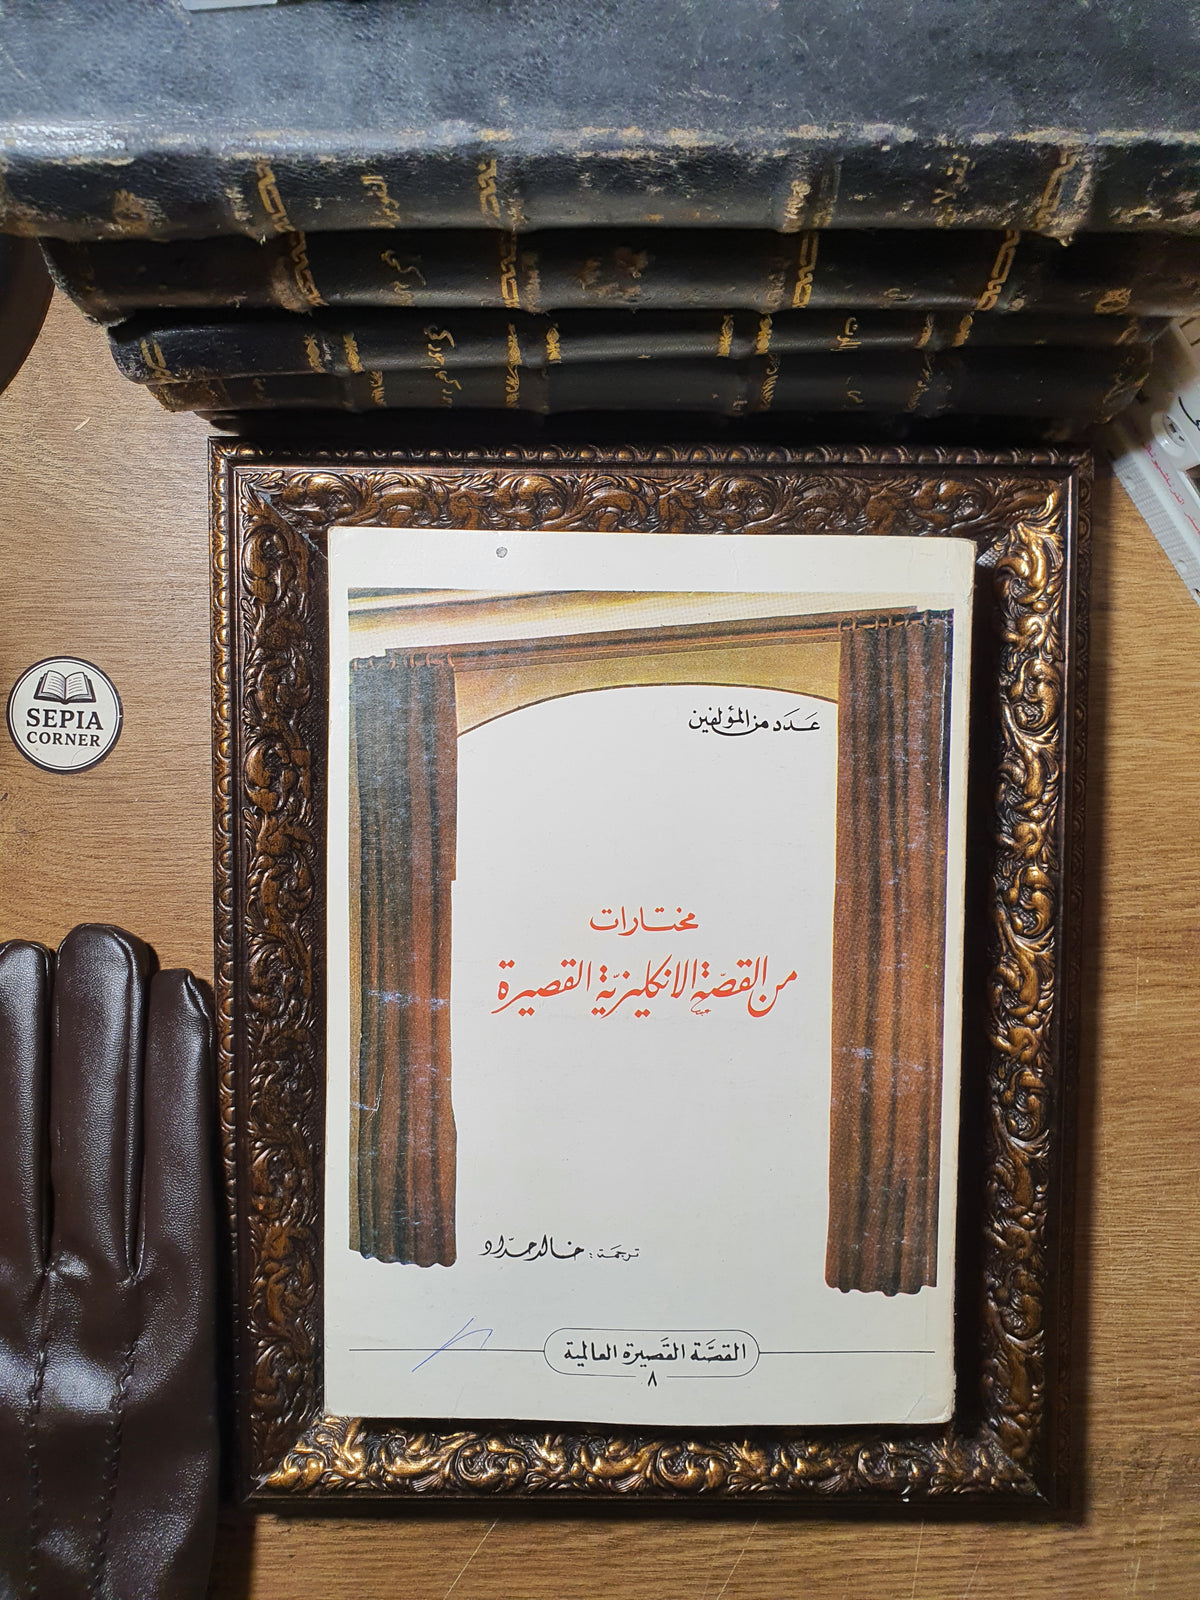 SEPIA
CORNER
عَدَد من المؤلفين
مختارات
من القصّة الانكليزيّة القصيرة
ترجمَة: خالد حدّاد
القصَّة القَصيرة العالمية
٨